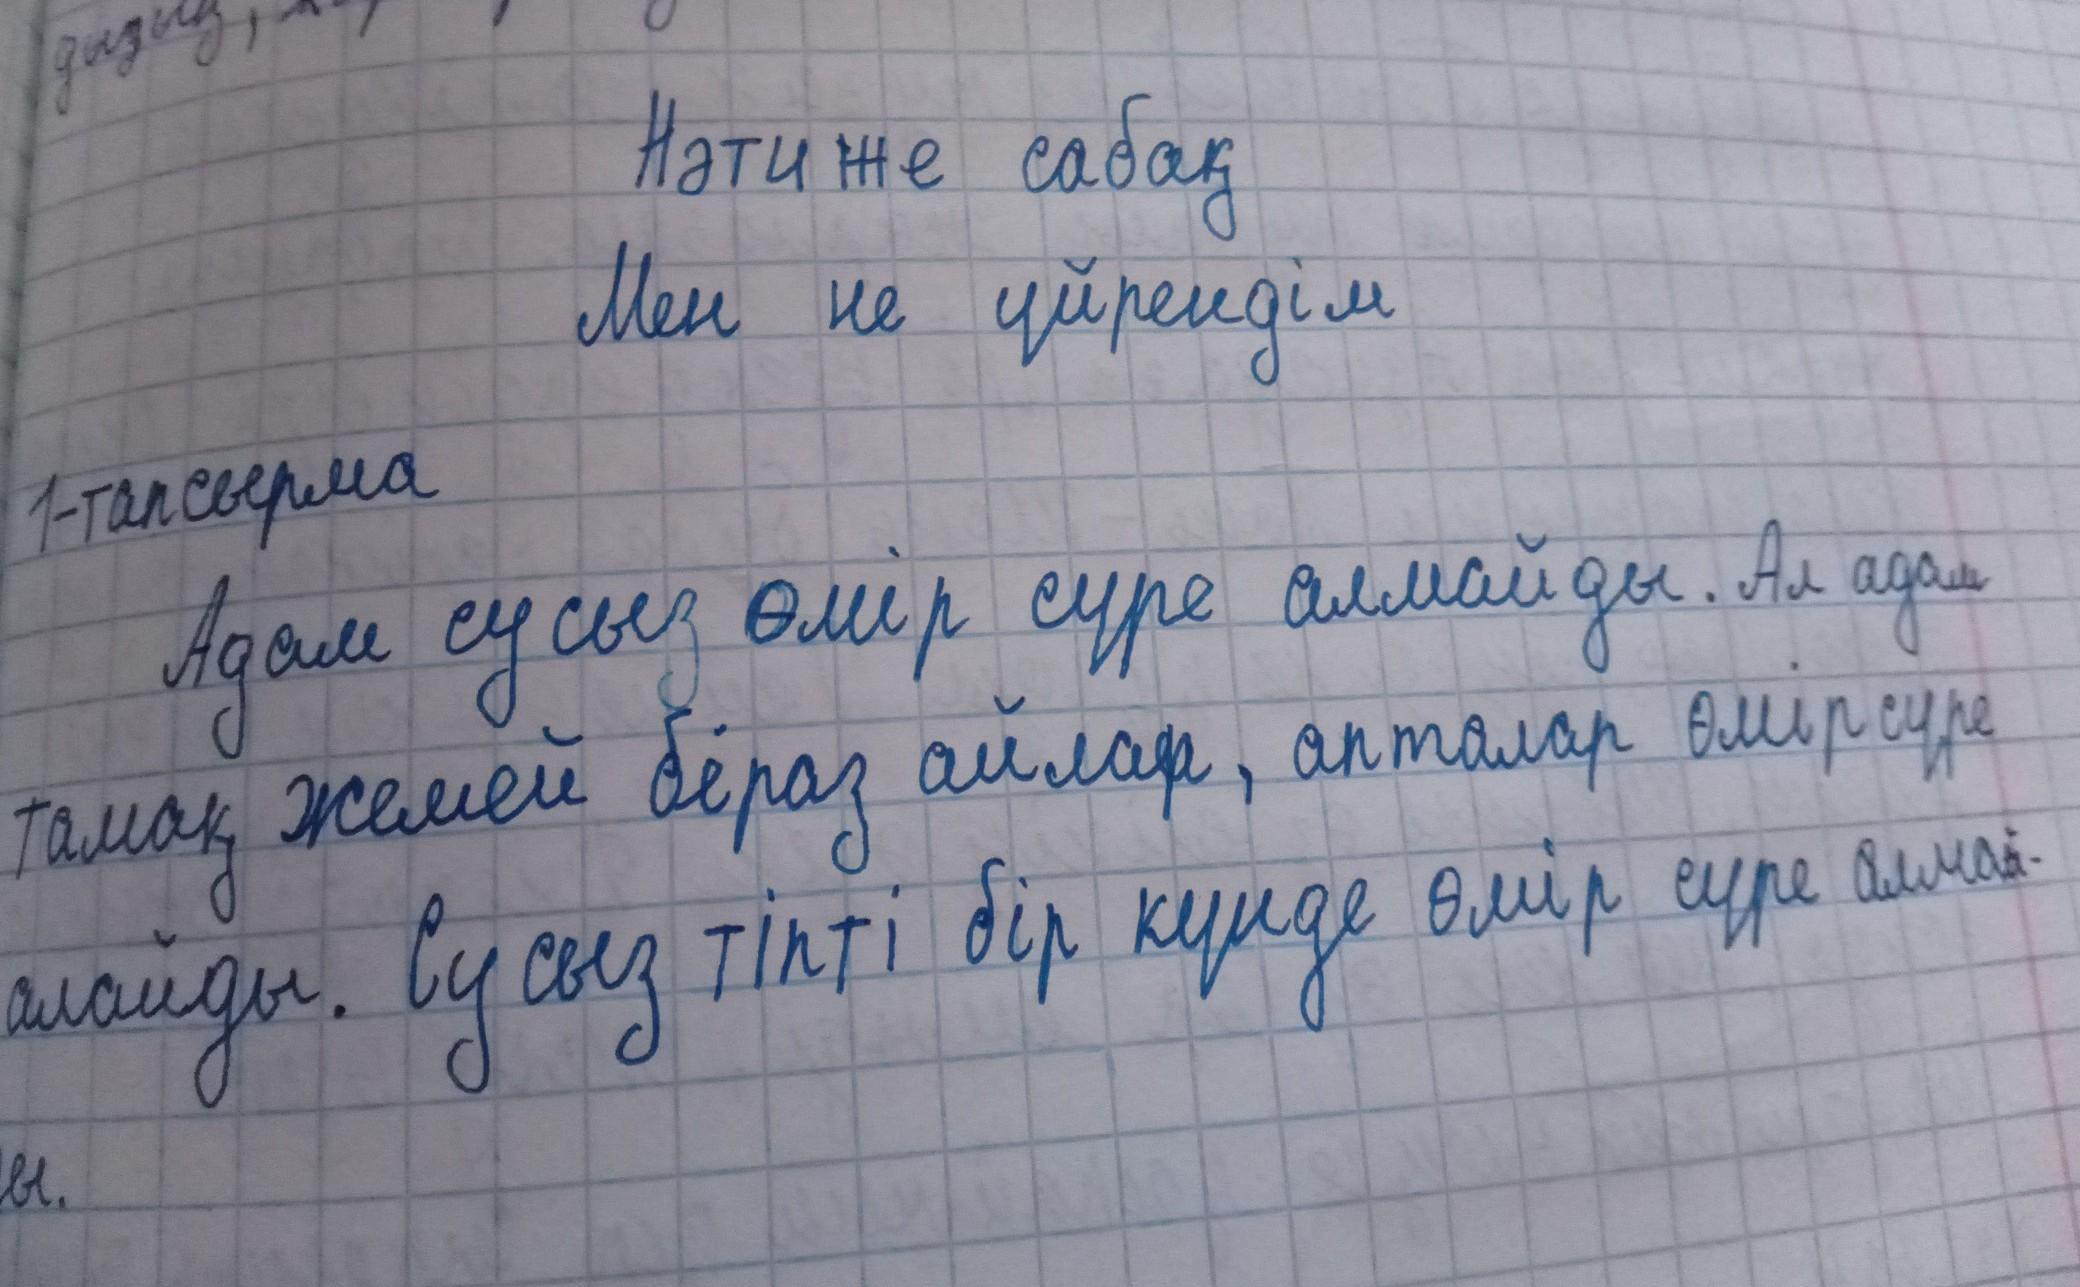 дызыз,
Нәтиже сабақ
Мен не үйрендім
1-тапсырма
Адам су сыз өмір сүре алмайды. Ал адам
тамақ жемей біраз айлар, апталар өмір сүре
алайды. Су сыз тіпті бір күнде өмір сүре алмай-
ы.